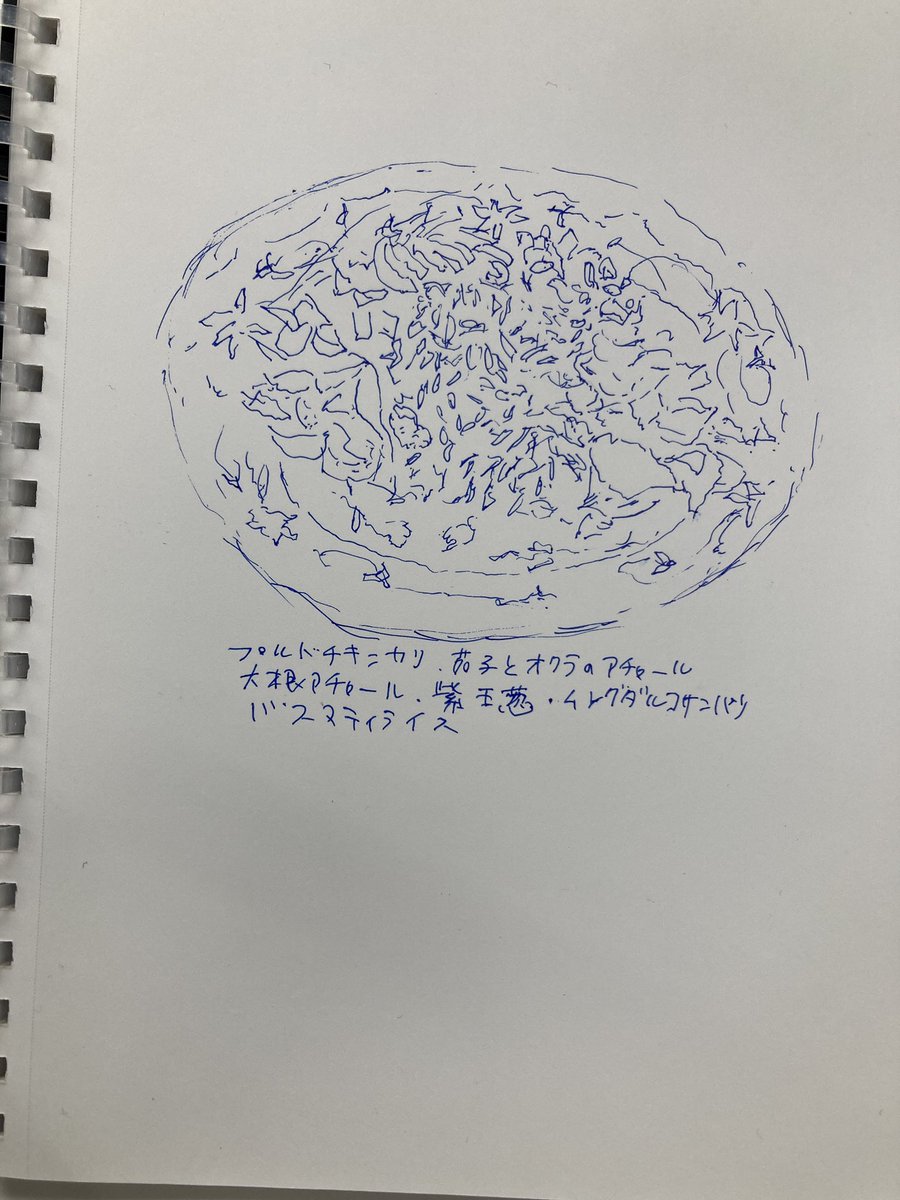 プルドチキンカリ.茄子とオクラのアチャール
大根アチャール.紫玉葱・ムングダルコサンバリ
バスマティライス